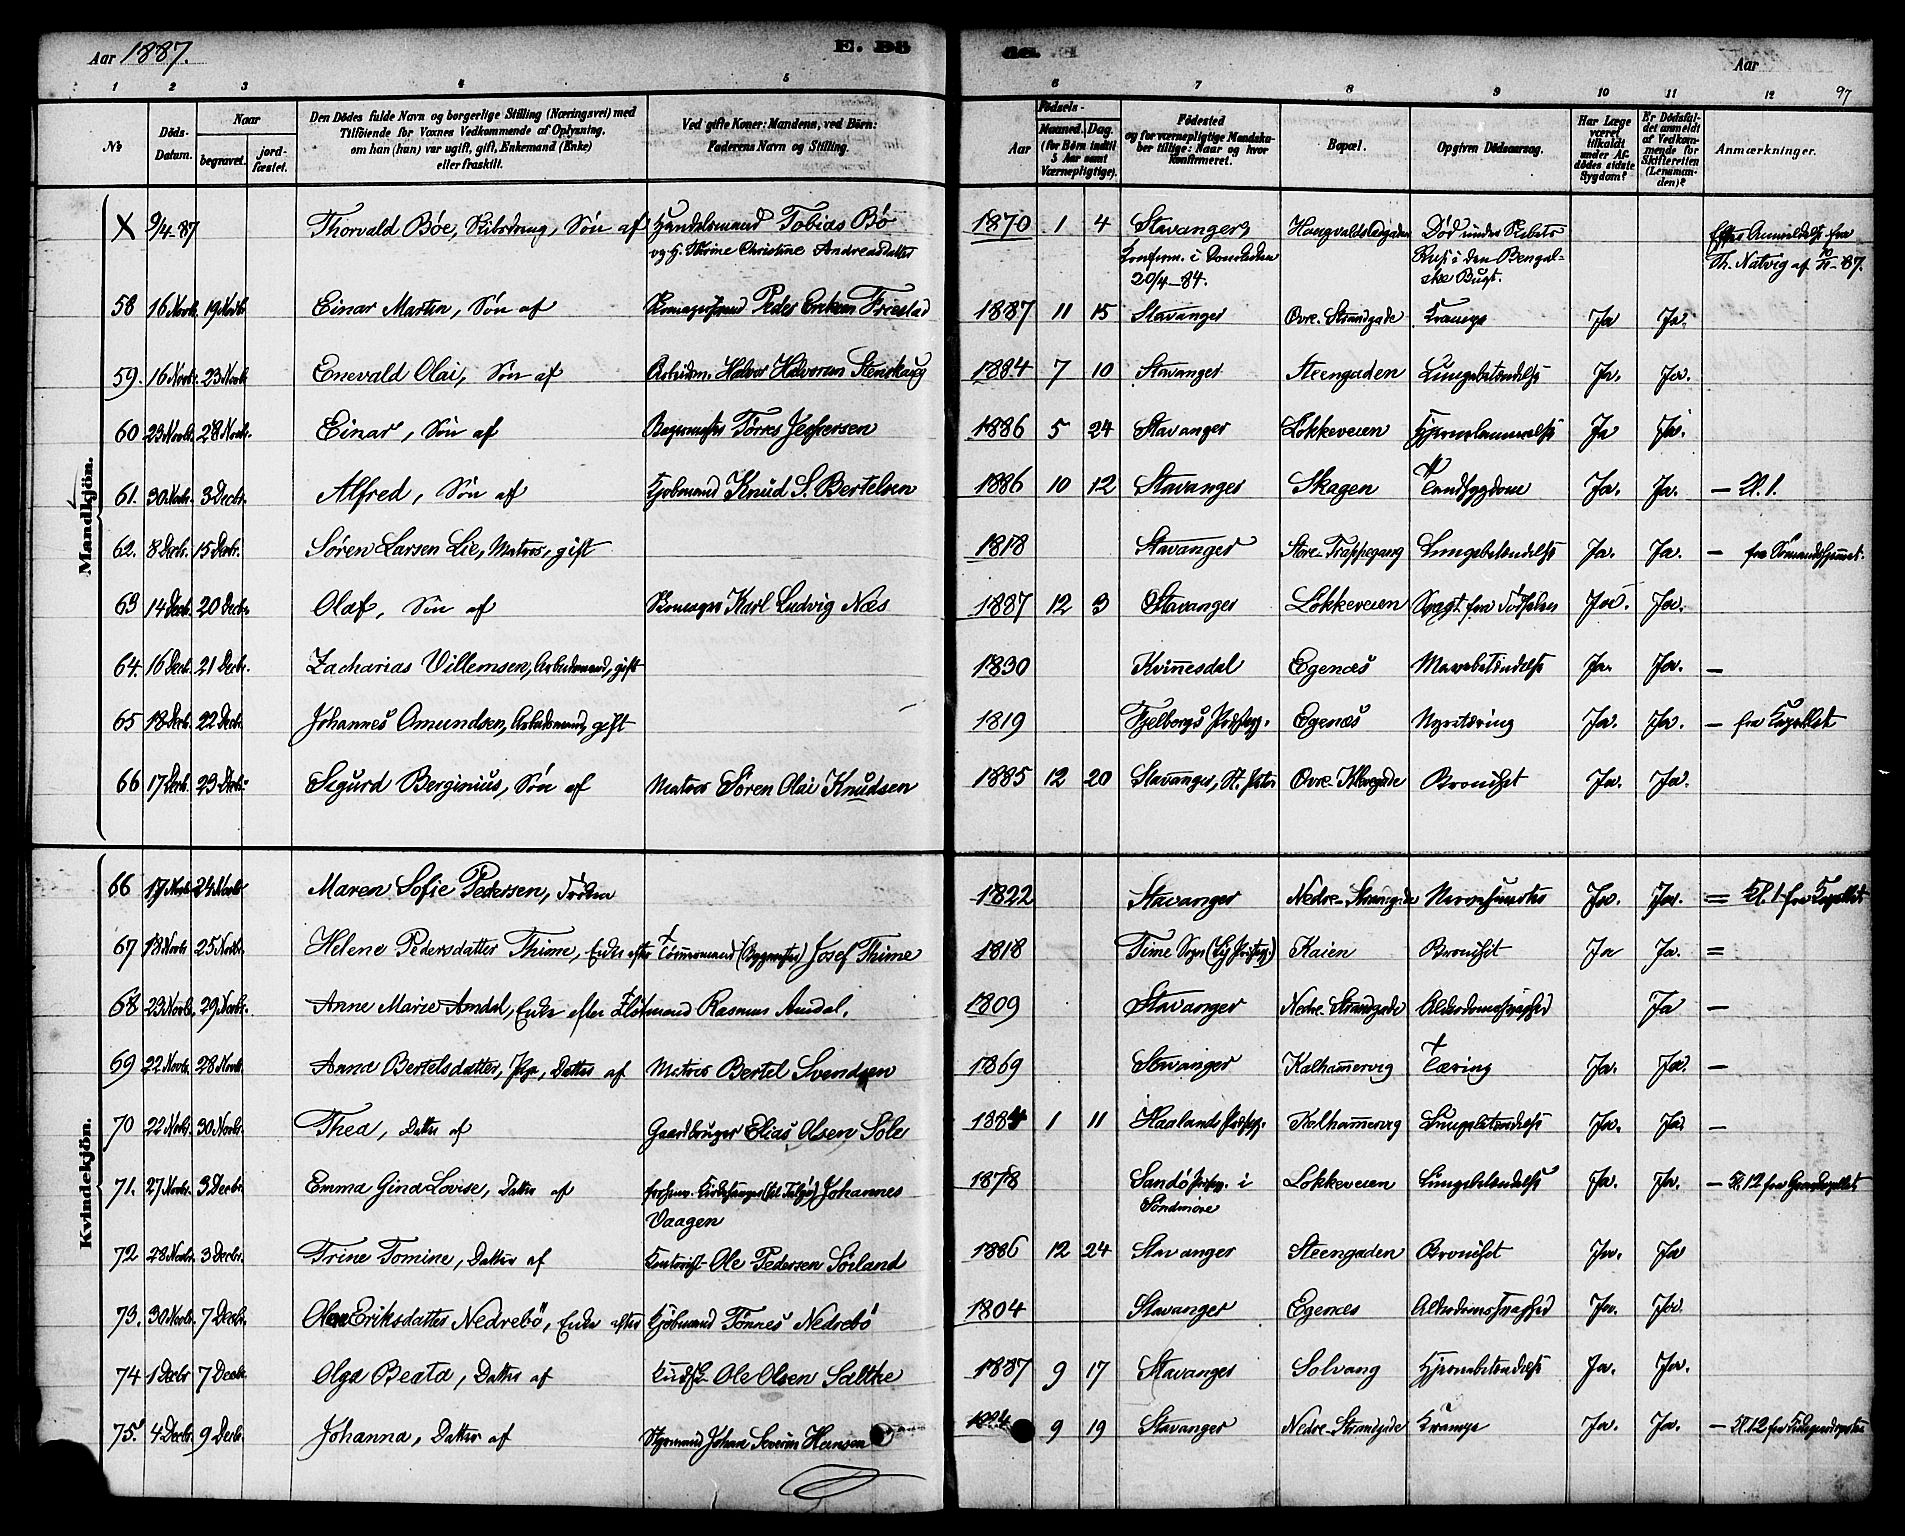 Aar 1887. E. Dö
de. Aar
97
1 2 3 4 5 6 7 8 9 10 11 12
№
Döds-Datum.
Naar
begravet.
jord-fæstet.
Den Dödes fulde Navn og borgerlige Stilling (Næringsvei) med
Tilföiende for Voxnes Vedkommende af Oplysning,
om han (hun) var ugift, gift, Enkemand (Enke)
eller fraskilt.
Ved gifte Koner: Mandens, ved Börn:
Faderens Navn og Stilling.
Aar
Födsels-
Maaned. Dag.
(for Börn indtil
5 Aar samt
Værnepligtige).
Födested
og for værnepligtige Mandska-
ber tillige: Naar og hvor
konfirmeret.
Bopæl.
Opgiven Dödsaarsag.
Har Læge
været
tilkaldt
under Af-
dödes sidste
Sygdom?
Er Dödsfal-
det anmeldt
af Vedkom-
mende for
Skifteretten
(Lensman-
den)?
Anmærkninger.
Mandkjön.
X 9/4-87 Thorvald Böe, Søn af Handelsmand Tobias Bö 1870 1 4 Stavanger Død under Skibets
og H. Thrine Christine Andreasdatter Konfirm. i Domkirken Rejse i den Bengal-
20/4-84. ske Bugt. Th. Natvig af 10/11-87.
58 16 Novb. 19 Novb. Einar Martin, Søn af Peder Eriksen 1887 11 15 Stavanger Øvre-Strandgade Krampe Ja Ja.
59. 16 Novb. 23 Novb. Enevald Olai, Søn af Arbeidsm. Halvor Halvorsen 1884 7 10 Stavanger Steengaden Lungebetændelse Ja. Ja.
60 23 Novb. 28 Novb. Einar, Søn af Bagermester Törres Jespersen 1886 5 24 Stavanger Løkkeveien Ja Ja.
61. 30 Novb. 3 Decbr. Alfred, Søn af Kjøbmand Knud S. Bertelsen 1886 10 12 Stavanger Skagen Tandsygdom Ja. Ja. – Kl. 1.
62. 8 Decb. 15 Decb. Søren Larsen Lie, Matros, gift 1818 Stavanger Store-Trappegang Lungebetændelse Ja. Ja. –
63 14 Decb. 20 Decb. Olaf, Søn af Skomager Karl Ludvig Næs 1887 12 3 Stavanger Løkkeveien Svagt fra Fødselen Ja. Ja.
64. 16 Decb. 21 Decb. Zacharias Villemsen, Arbeidsmand, gift 1830 Kvinesdal Egenæs Mavebetændelse Ja. Ja. –
65 18 Decb. 22 Decb. Johannes Omundsen, Arbeidsmand, gift 1819 Fjelbergs Præstegj. Egenæs Nyretæring Ja. Ja. – fra Kapellet
66 17 Decb. 23 Decb. Sigurd Berginius, Søn af Matros Søren Olai Knudsen 1885 12 20 Stavanger, St. Petri Øvre-Klevegade Bronchit Ja. Ja.
Kvindekjön.
66 17 Novb. 24 Novb. Maren Sofie Pedersen, Frøken 1822 Stavanger Nedre-Strandgade Ja. Ja. = Kl. 1 fra Kapellet
67 18 Novb. 25 Novb. Helene Pedersdatter Thime, Enke efter Tømmermand (Bygmester) Josef Thime 1818 Time Sogn (Lye Præstegj.) Kaien Bronchit Ja Ja. =
68 23 Novb. 29 Novb. Anne Marie Amdal, Enke efter Rasmus Amdal. 1809 Stavanger Nedre Strandgade Alderdomssvaghed Ja –
69 22 Novb. 28 Novb. Anna Bertelsdatter, Pige, Datter af Matros Bertel Svendsen 1869 Stavanger Kalhammervig Tæring Ja. Ja. –
70 22 Novb. 30 Novb. Thea, Datter af Gaardbruger Elias Olsen Sole 1884 1 11 Haaland Præstegj. Kalhammervig Lungebetændelse Ja. Ja. –
71. 27 Novb. 3 Decbr. Emma Gina Lovise, Datter af Kirkesanger Johannes 1878 Sandö Præstegj. i Løkkeveien Lungebetændelse Ja. Ja. – Kl. 12 fra Gravkapellet
Vaagen Söndmöre
72 28 Novb. 3 Decbr. Trine Tomine, Datter af Ole Pedersen Sörland 1886 12 24 Stavanger Steengaden Bronchit Ja. Ja
73. 30 Novb. 7 Decb. Olene Eriksdatter Nedrebö, Enke efter Kjøbmand Tönnes Nedrebö 1804 Stavanger Egenæs Alderdomssvaghed Ja. Ja.
74 1 Decbr 7 Decb. Olga Beata, Datter af Ole Olsen Salthe 1887 9 17 Stavanger Solvang Hjernebetændelse Ja. Ja.
75. 4 Decbr 9 Decb. Johanna, Datter af Styrmand Johan Severin Hansen 9 19 Stavanger Nedre-Strandgade Krampe Ja. Ja. – Kl. 12